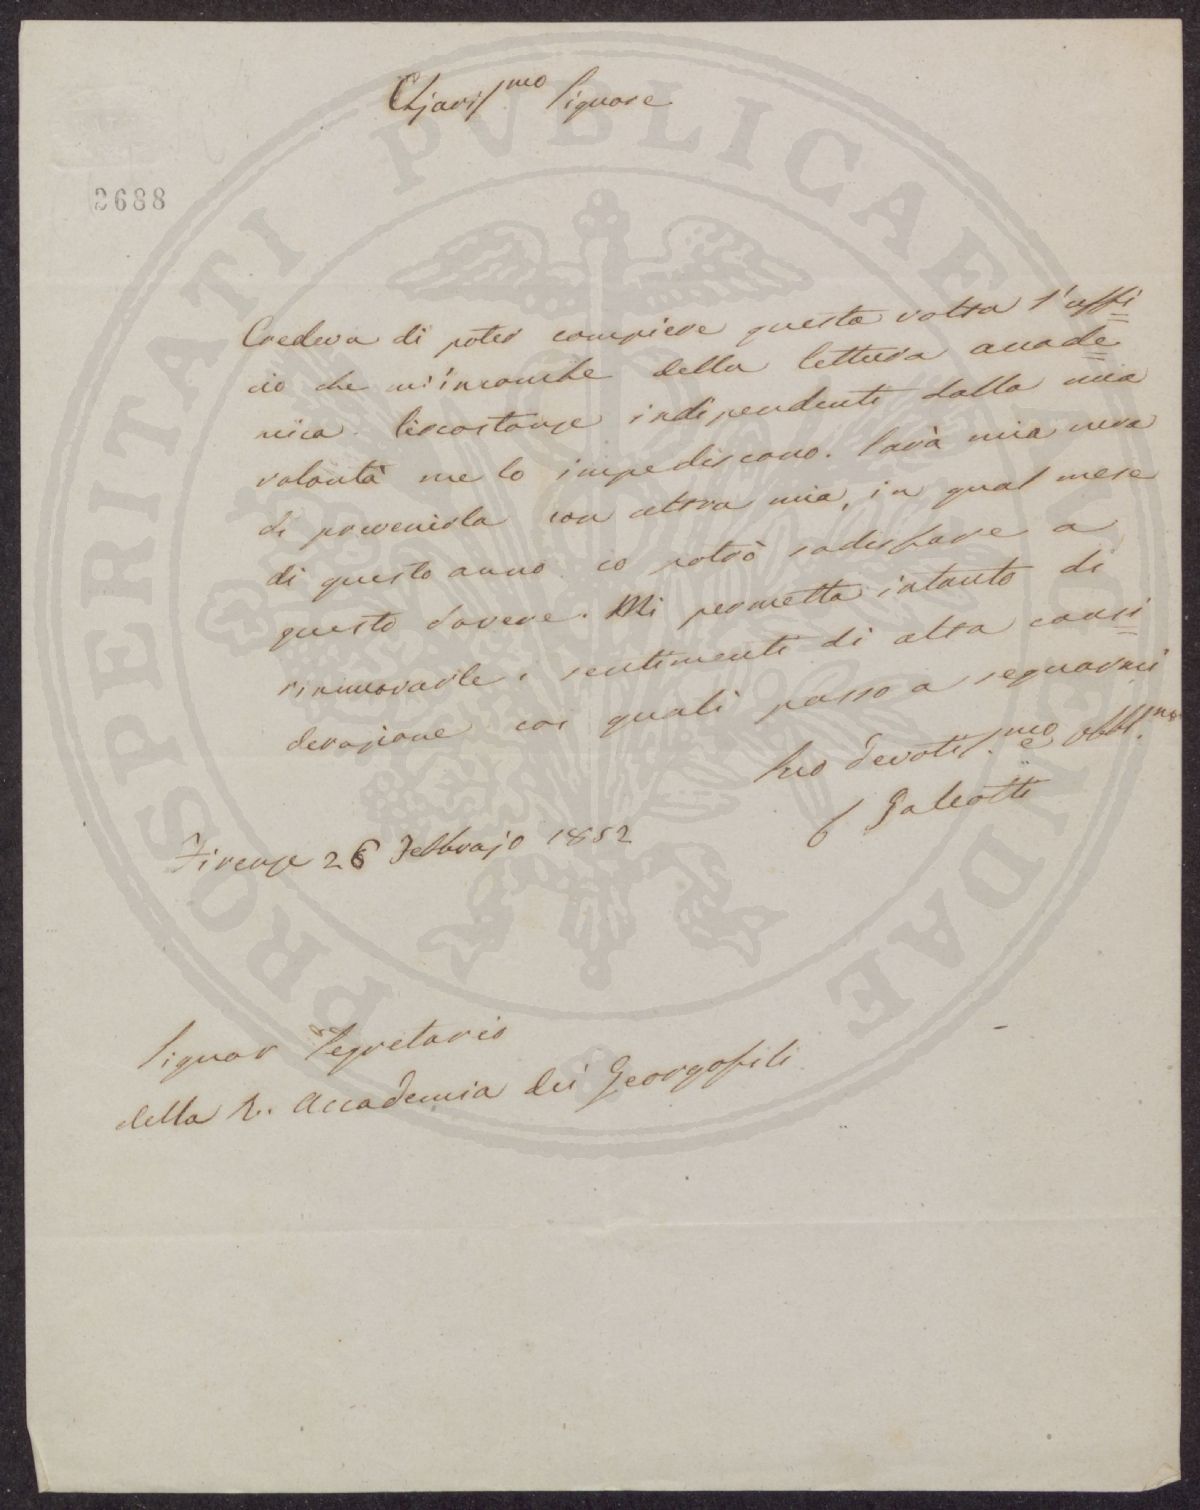 Chjariss.mo Signore
2688
Credeva di poter compiere questa volta l'uffi=
cio che m'incombe della lettura accade=
mica. Circostanze indipendenti dalla mia
volontà me lo impediscono. Sarà mia cura
di prevenirla con altra mia, in qual mese
di questo anno io potrò sadisfare a
questo dovere. Mi permetta intanto di
rinnuovarle i sentimenti di alta consi=
derazione coi quali passo a segnarmi
Suo devotiss.mo e obbl.mo
Galeotti
Firenze 26 Febbrajo 1852
Signor Segretario
della R. Accademia dei Georgofili
PROSPERITATI PVBLICAE AVGENDAE